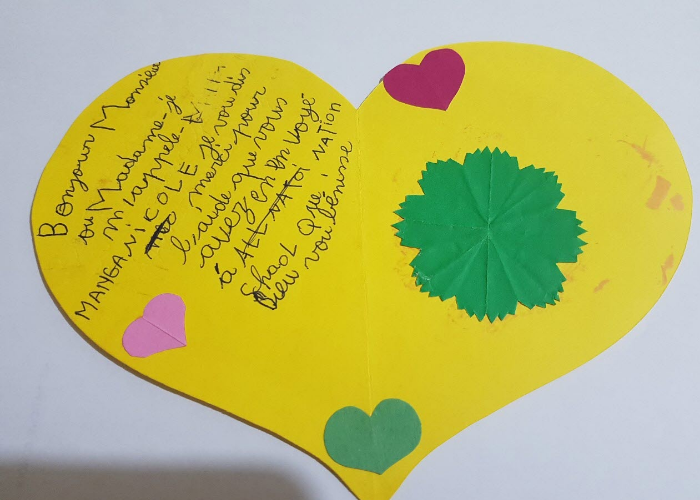 Bonjour Monsieur
ou Madame-je
m'appelle-
MANGANI COLE je vou dis
merci pour
l'aide que vous
avez en en voyé
à ALL NATION
Shool Que
Dieu vou bénisse